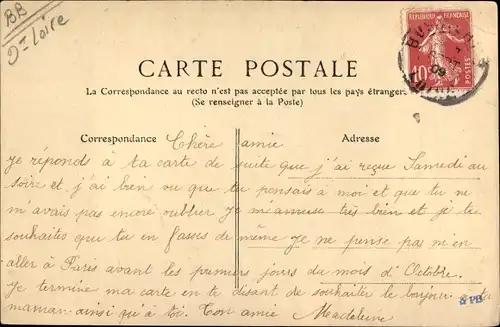 BB
Dt Loire
RÉPUBLIQUE FRANÇAISE
10
POSTES
09
LOIRE
CARTE POSTALE
La Correspondance au recto n'est pas acceptée par tous les pays étrangers
(Se renseigner à la Poste)
Correspondance
Adresse
Chère amie
Je réponds à ta carte de suite que j'ai reçue Samedi au
soire et j'ai bien vu que tu pensais à moi et que tu ne
m avais pas encore oublier Je m'amuse très bien et je te
souhaites que tu en fasses de même Je ne pense pas m'en
aller à Paris avant les premiers jours du mois d'Octobre.
Je termine ma carte en te disant de souhaiter le bonjour à ta
maman ainsi qu'à toi. Ton amie Madeleine
& PB